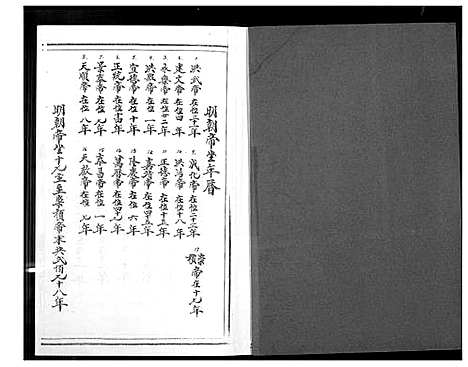 明朝帝坐年曆
洪武帝在位三十一年
建文帝在位四年
永樂帝在位廿二年
洪熙帝在位一年
宣德帝在位十年
正統帝在位十四年
景泰帝在位九年
天順帝在位八年
成化帝在位二十三年
弘治帝在位十八年
正德帝在位十五年
嘉靖帝在位四十五年
隆慶帝在位六年
萬曆帝在位四十九年
泰昌帝在位一年
天啟帝在位七年
崇禎帝在十九年
明朝帝坐十九宝至崇禎帝本共式百九十八年